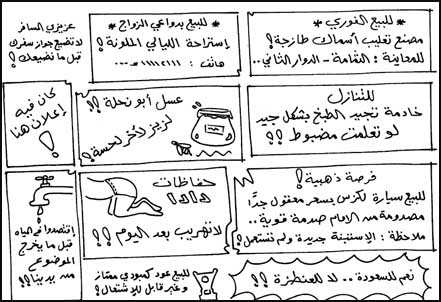 * للبيع الفوري *
مصنع تعليب أسماك طازجة!
للمعاينة: القمامة - الدوار الثاني..
* للبيع بدواعي الزواج *
إستراحة الليالي الملونة!
هاتف: ١١١١٢١١١-٠٠٠
عزيزي المسافر
لا تضيع جواز سفرك
قبل ما نضيعك!
للتنازل
خادمة تجيد الطبخ بشكل جيد
لو تعلمت مضبوط !!
عسل أبو نحلة !!
لزيز لآخر لحسة!
كان فيه
إعلان هنا
!
فرصة ذهبية!
للبيع سيارة لكزس بسعر معقول جدًا
مصدومة من الامام صدمة قوية..
ملاحظة: الإستبنة جديرة ولم تستعمل!
حفاظات
لا تهريب بعد اليوم !!
إقتصدوا في المياه
قبل ما يخرج
الموضوع
من يدينا!!
نعم للسعودة.. لا للعنطزة !!
للبيع عود كمبودي ممتاز
وغير قابل للإشتعال!